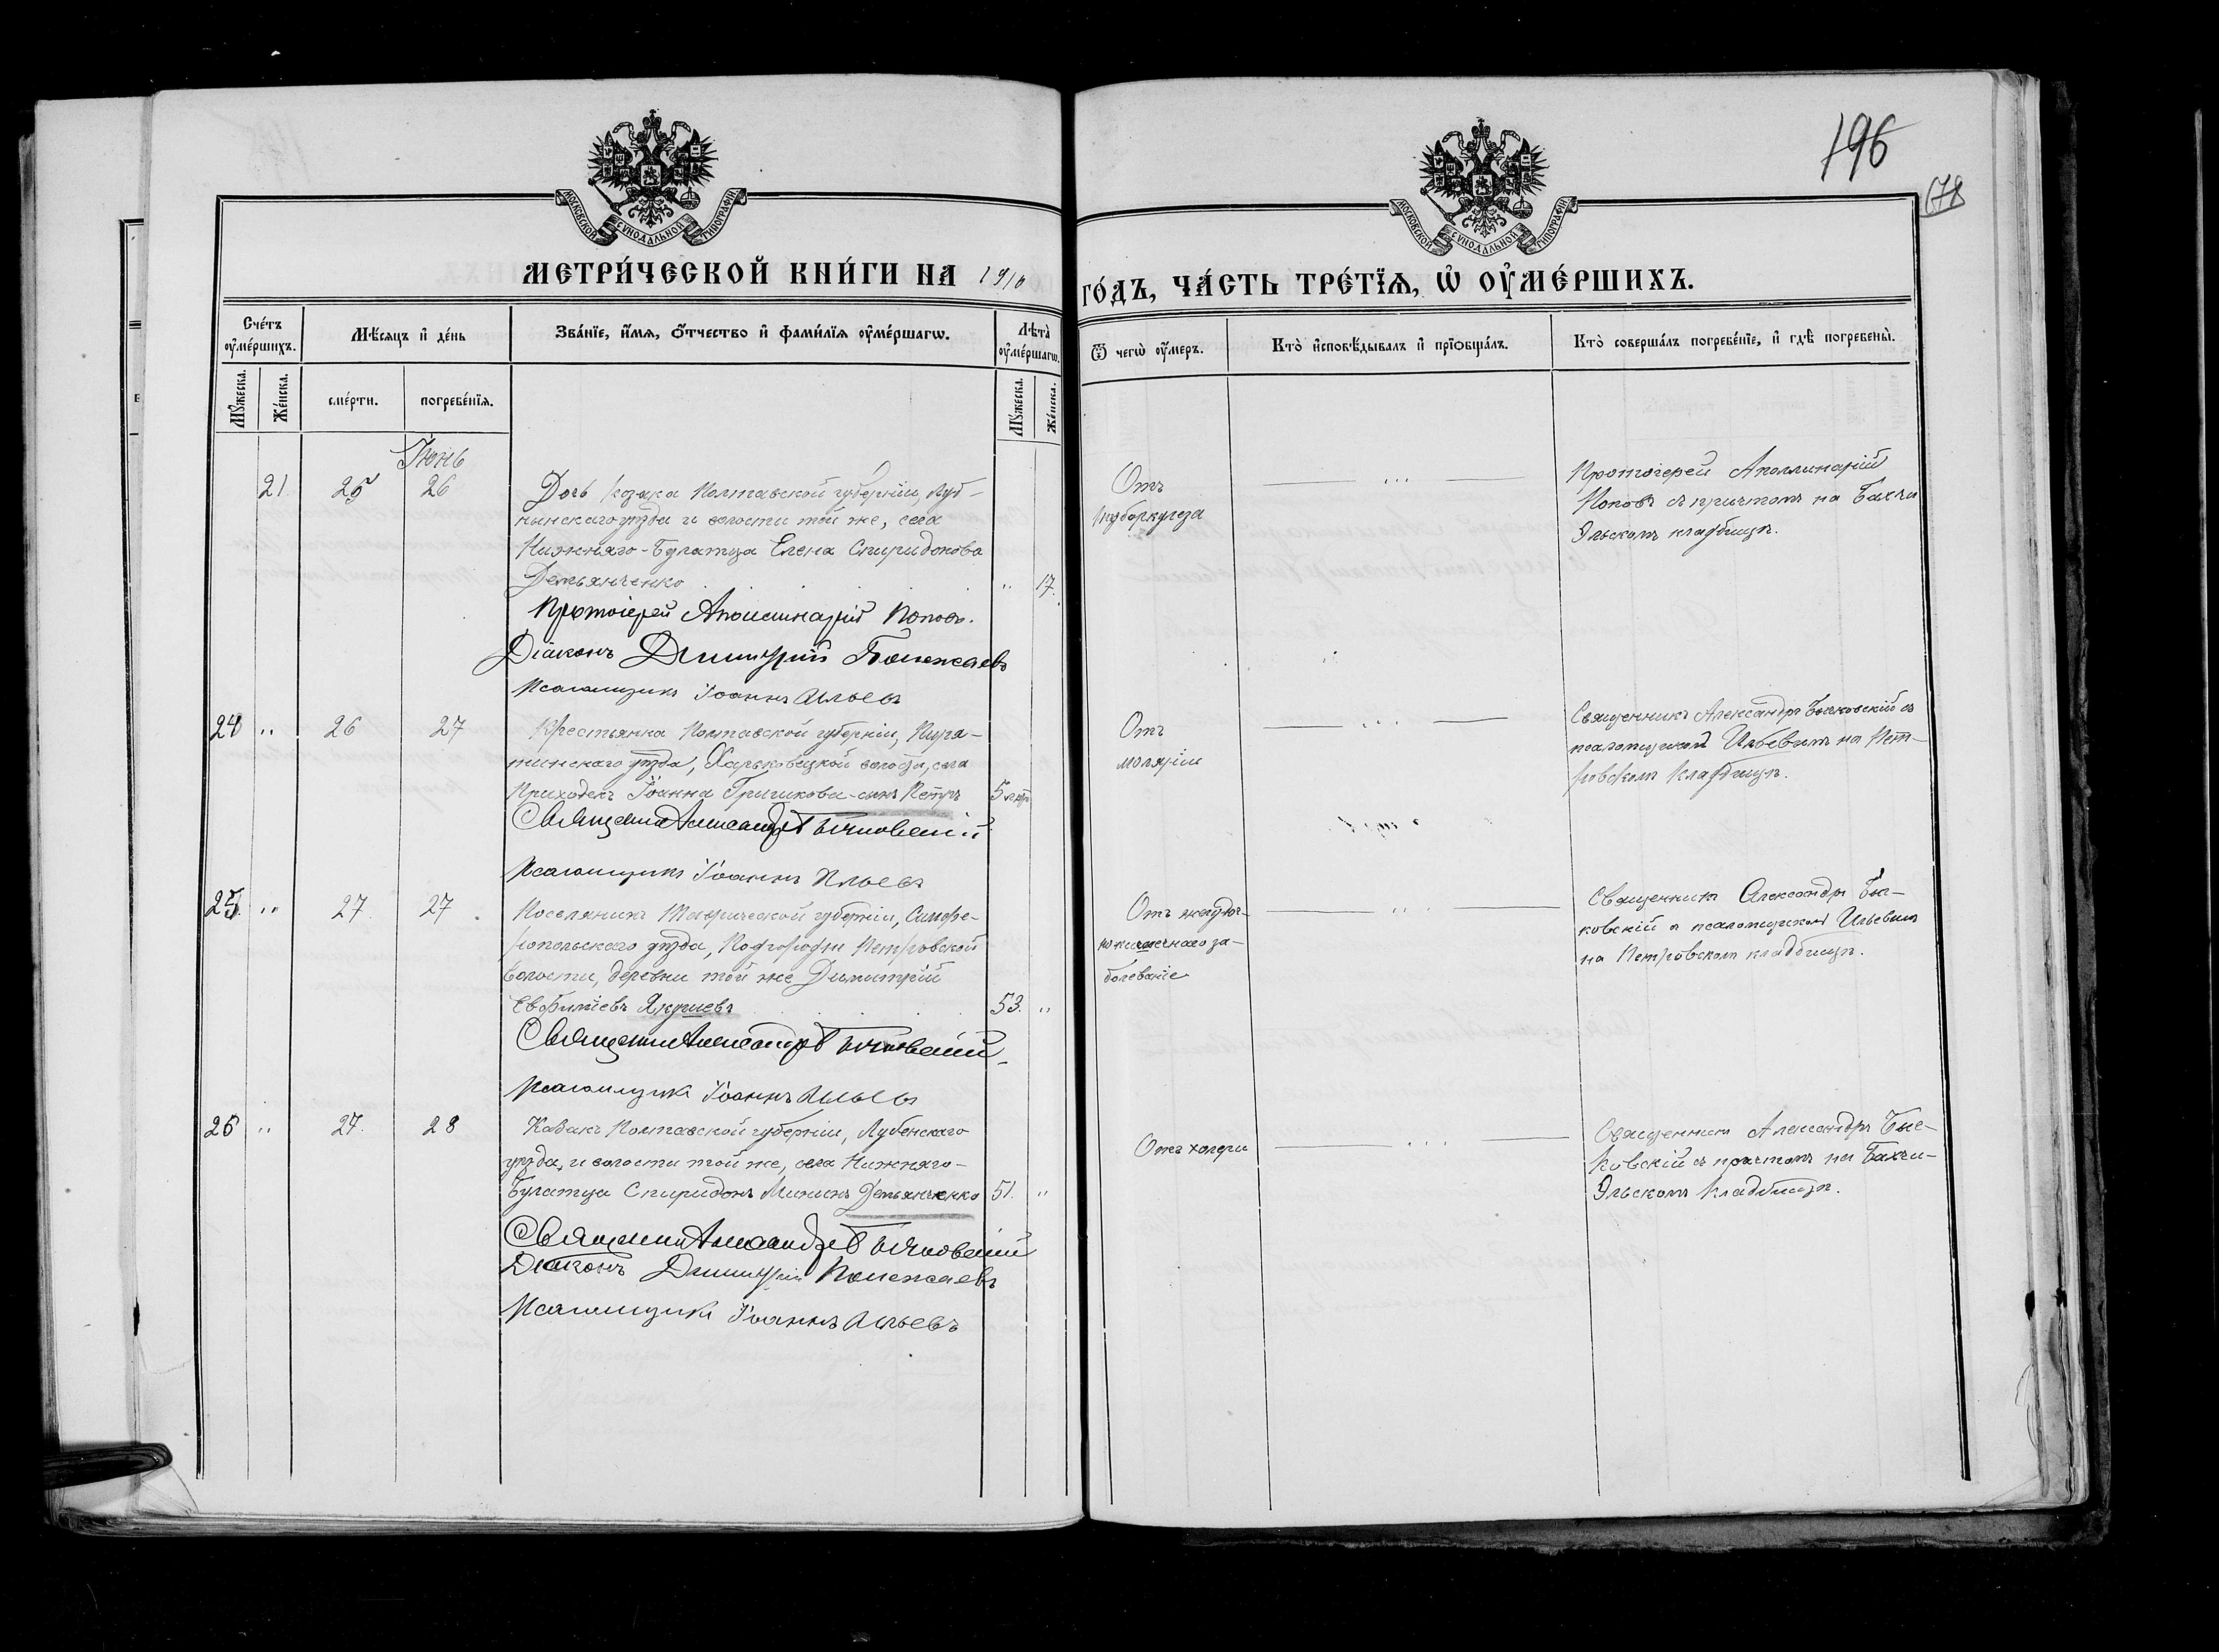 196
678
МОСКОВСКОЙ СѴНОДАЛЬНОЙ ТИПОГРАФІИ
МОСКОВСКОЙ СѴНОДАЛЬНОЙ ТИПОГРАФІИ
МЕТРИ́ЧЕСКОЙ КНИ́ГИ НА 1910
ГО́ДЪ, ЧА́СТЬ ТРЕ́ТІѦ, Ѡ҆ ОУ҆МЕ́РШИХЪ.
Сче́тъ оу҆ме́ршихъ.
Мѣ́сяцъ и҆ де́нь
Зва́нїе, и҆́мѧ, ѻ҆́тчество и҆ фами́лїѧ оу҆ме́ршагѡ.
Лѣ́та оу҆ме́ршагѡ.
Ѿ чегѡ̀ оу҆́меръ.
Кто̀ и҆сповѣ́дывалъ и҆ прїѡбща́лъ.
Кто̀ соверша́лъ погребе́нїе, и҆ гдѣ̀ погребены̀.
Му́жеска.
Же́нска.
сме́рти.
погребе́нїѧ.
Му́жеска.
Же́нска.
Іюнь
21 25 26
Дочь козака Полтавской губерніи, Луб-
нынскаго уѣзда и волости той же, села
Нижняго-Булатца Елена Спиридонова
Демьянченко " 17.
Протоіерей Аполлинарій Поповъ.
Діаконъ Димитрій Полежаевъ
Псаломщикъ Іоаннъ Ильевъ
Отъ
туберкулеза
Протоіерей Аполлинарій
Поповъ съ причтомъ на Бахчи
Эльскомъ кладбищѣ.
24 " 26 27
Крестьянка Полтавской губерніи, Пиря-
тинскаго уѣзда, Харьковецкой волости, села
Приходекъ Іоанна сынъ Петръ 5
Священникъ Александръ Бычковскій
Псаломщикъ Іоаннъ Ильевъ
Отъ
маляріи
Священникъ Александръ Бычковскій съ
псаломщикомъ Ильевымъ на Пет-
ровскомъ кладбищѣ.
25. " 27. 27.
Поселянинъ Таврической губерніи, Симфе-
ропольскаго уѣзда, Подгородне Петровской
волости, деревни той же Димитрій
Евфиміевъ 53. "
Священникъ Александръ Бычковскій
Псаломщикъ Іоаннъ Ильевъ
Отъ желудоч-
но кишечнаго за-
болеваніе
Священникъ Александръ Быч-
ковскій съ псаломщикомъ Ильевымъ
на Петровскомъ кладбищѣ.
26 " 27. 28
Казакъ Полтавской губерніи, Лубенскаго
уѣзда, и волости той же, села Нижняго-
Булатца Спиридонъ Мининъ Демьянченко 51. "
Священникъ Александръ Бычковскій
Діаконъ Димитрій Полежаевъ
Псаломщикъ Іоаннъ Ильевъ
Отъ холеры
Священникъ Александръ Быч-
ковскій съ причтомъ на Бахчи-
Эльскомъ кладбищѣ.